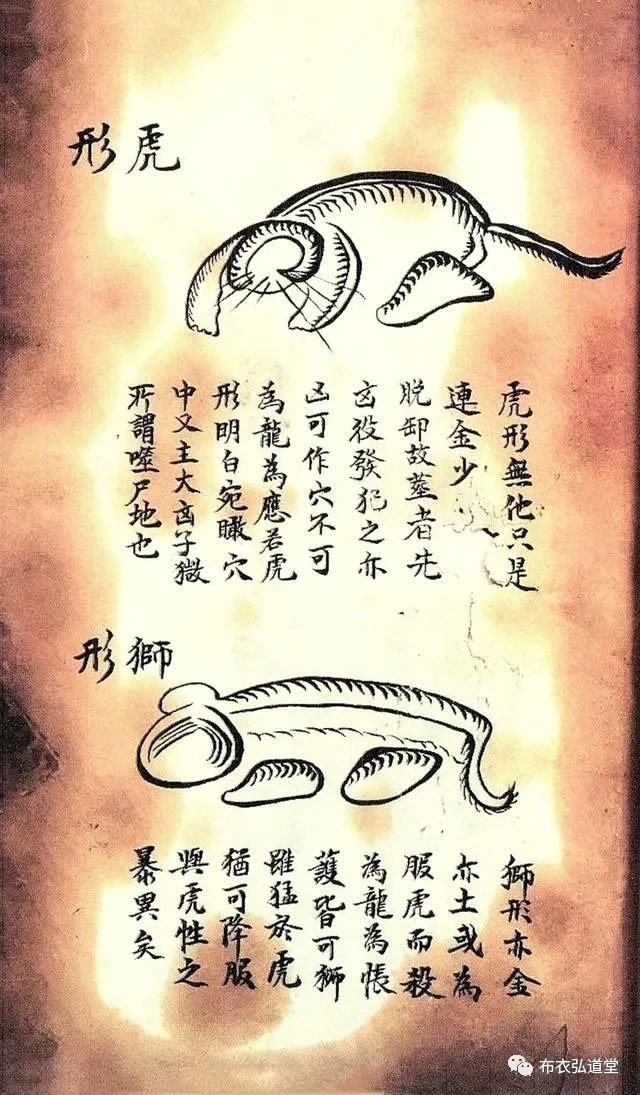 虎形
虎形無他只是
連金少
脱卸故塟者先
㐫殺發犯之亦
凶可作穴不可
為龍為應若虎
形明白宛瞰穴
中又主大㐫子
所謂噬尸地也
獅形
獅形亦金
亦土或為
服虎而殺
為龍為帳
護皆可獅
雖猛於虎
猶可降服
與虎性之
暴異矣
布衣弘道堂